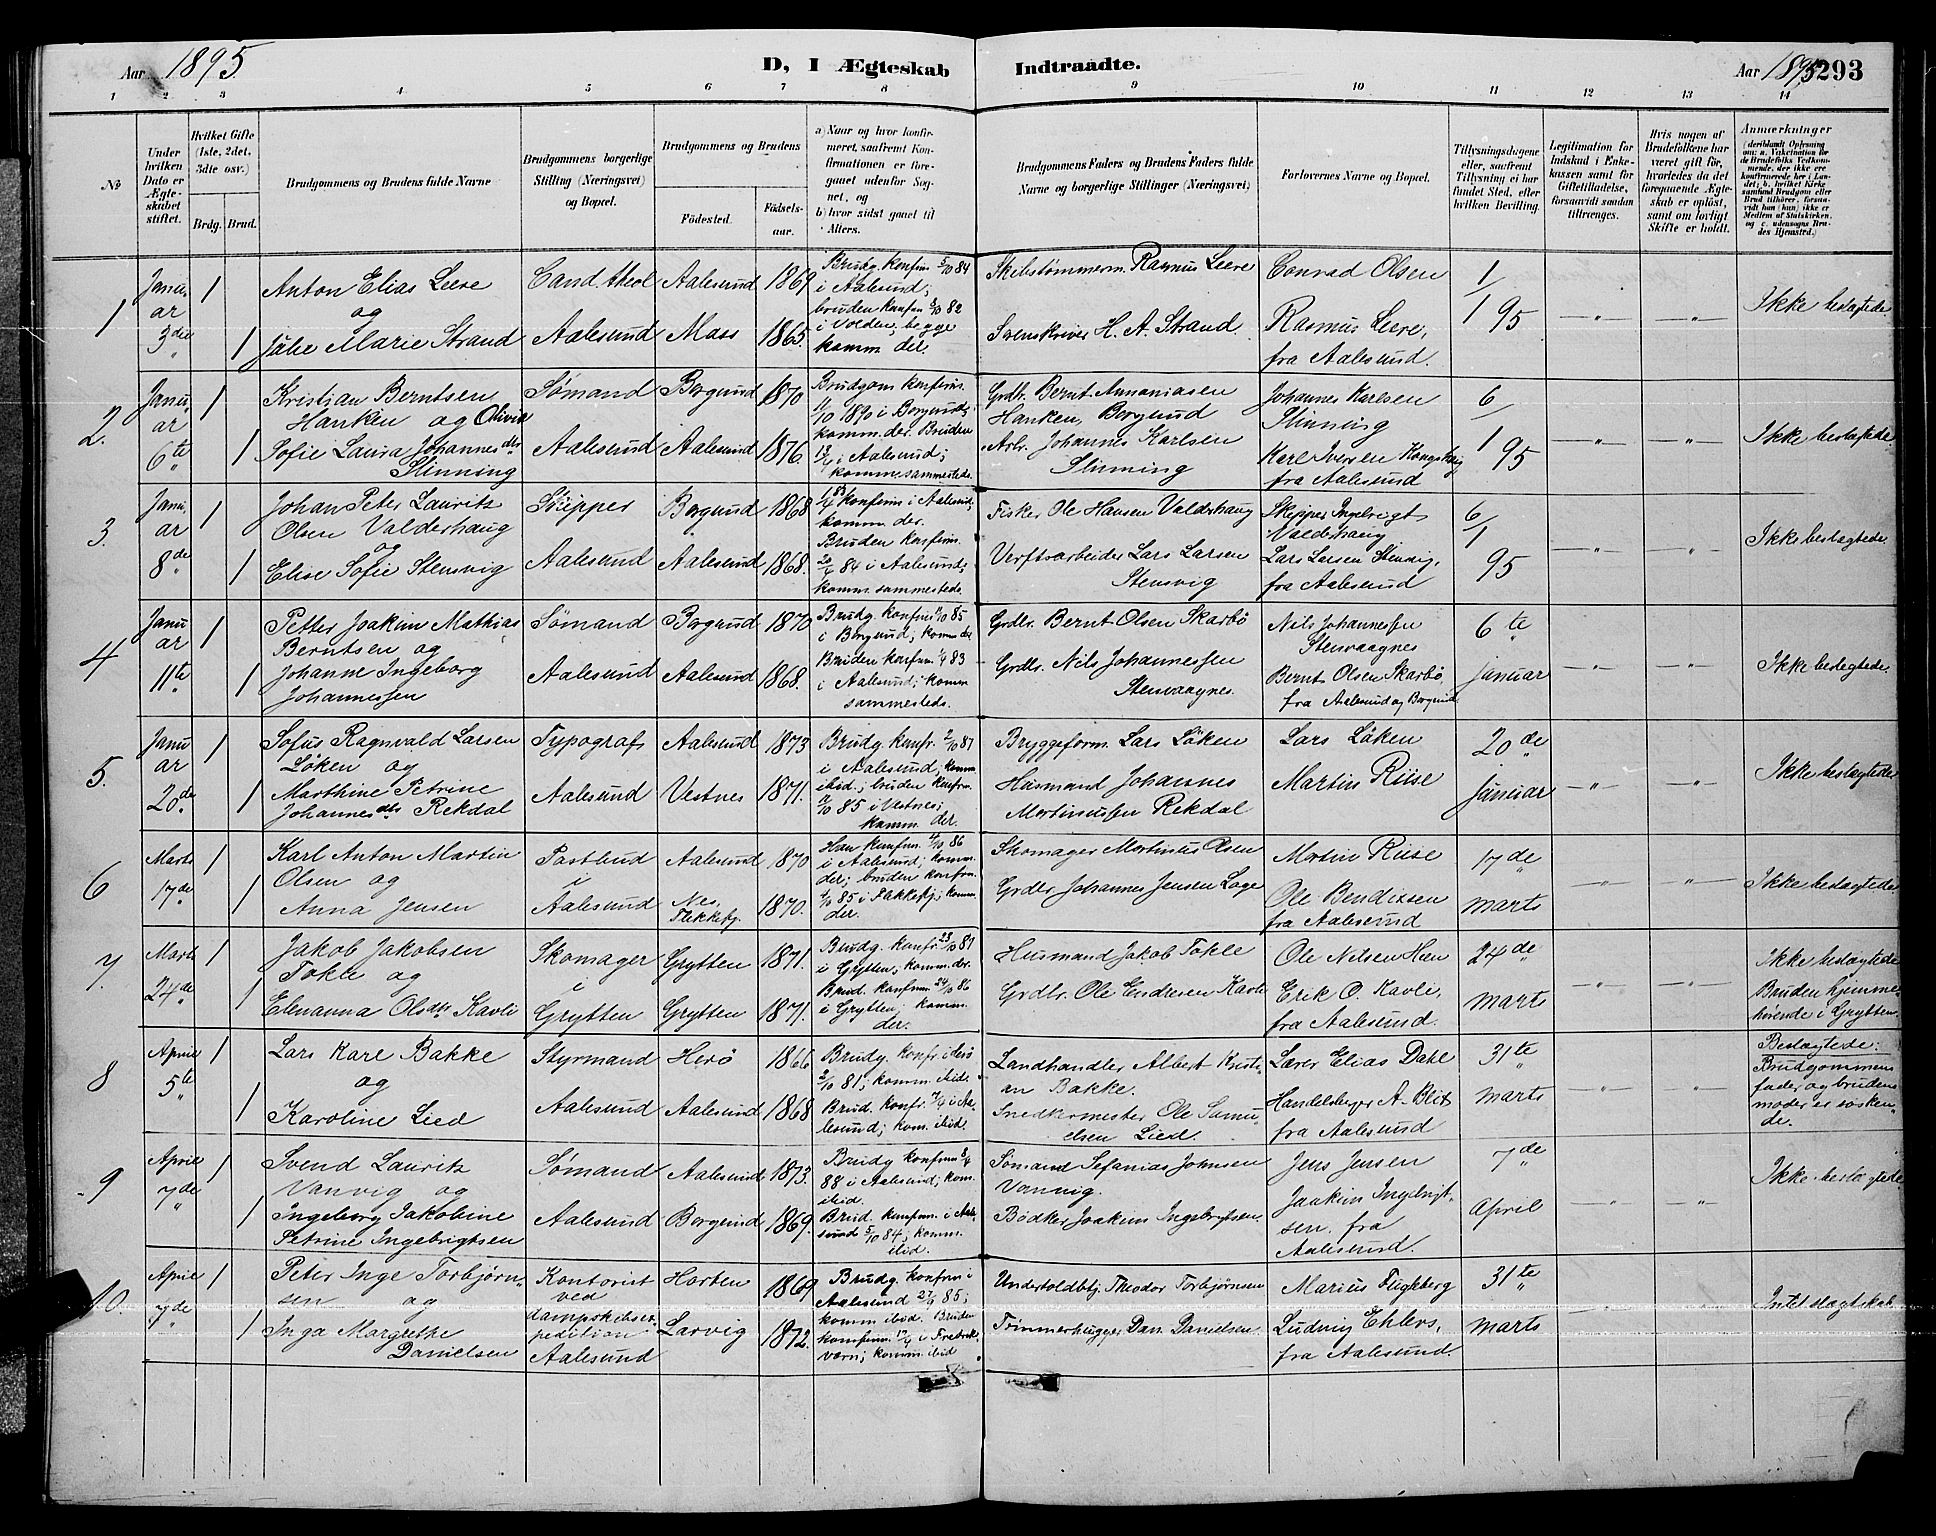 Aar 1895
D, I Ægteskab
Indtraadte.
Aar 1895 293
1 2 3 4 5 6 7 8 9 10 11 12 13 14
№
Under hvilken Dato er Ægteskabet stiftet.
Hvilket Gifte (1ste, 2det, 3dte osv.)
Brdg. Brud.
Brudgommens og Brudens fulde Navne
Brudgommens borgerlige Stilling (Næringsvei) og Bopæl.
Brudgommens og Brudens
Fødested.
Fødselsaar.
a) Naar og hvor konfirmeret, saafremt Konfirmationen er foregaaet udenfor Sognet, og
b) hvor sidst gaaet til Alters.
Brudgommens Faders og Brudens Faders fulde Navne og borgerlige Stillinger (Næringsvei)
Forlovernes Navne og Bopæl.
Tillysningsdagene eller, saafremt Tillysning ei har fundet Sted, efter hvilken Bevilling.
Legitimation for Indskud i Enkekassen samt for Giftetilladelse, forsaavidt saadan tiltrænges.
Hvis nogen af Brudefolkene har været gift før, hvorledes da det foregaaende Ægteskab er opløst, samt om lovligt Skifte er holdt.
Anmærkninger
(deriblandt Oplysning om: a. Vakcination for de Brudefolks Vedkommende, der ikke ere konfirmerede her i Landet; b. hvilket Kirkesamfund Brudgom eller Brud tilhører, forsaavidt han (hun) ikke er Medlem af Statskirken, og c. udensogns Brudes Hjemsted.)
1 Januar 3die 1 1
Anton Elias Leere
og
Julie Marie Strand
Cand. theol
Aalesund
Aalesund 1869
Mass 1865.
Brudg. konfirm 5/10 84
i Aalesund;
bruden konfirm 8/10 82
i Volden; begge
komm. der.
Skibstømmerm. Rasmus Leere
Svenskriver H. A. Strand.
Conrad Olsen
Rasmus Leere,
fra Aalesund.
1/1 95
Ikke beslægtede
2. Januar 6te 1 1
Kristian Berntsen
Hanken og Olivia
Sofie Laura Johannesdtr
Slinning
Sømand
Aalesund
Borgund 1870
Aalesund 1876.
Brudgom konfirm.
1890 i Borgund;
komm. der. Bruden
i Aalesund;
komm. sammesteds.
Grdbr. Bernt Annaniasen
Hanken, Borgund
Arb. Johannes Karlsen
Slinning
Johannes Karlsen
Slinning
Karl Iversen Kongshaug
fra Aalesund
6/1 95
Ikke beslægtede
3. Januar 8de 1 1
Johan Peter Laurits
Olsen Valderhaug
og
Elise Sofie Stensvig
Skipper
Aalesund
Borgund 1868
Aalesund 1868.
konfirm i Aalesund;
komm. der.
Bruden konfirm.
84 i Aalesund;
komm. sammesteds.
Fisker Ole Hansen Valderhaug
Verftsarbeider Lars Larsen
Stensvig
Skipper Ingebrigt
Valderhaug
Lars Larsen Stensvig,
fra Aalesund
6/1 95
Ikke beslægtede
4 Januar 11te 1 1
Petter Joakim Mathias
Berntsen og
Johanne Ingeborg
Johannessen
Sømand
Aalesund
Borgund 1870
Aalesund 1868.
Brudg. konfirm 85
i Borgund; komm der
Bruden konfirm. 83
i Aalesund; komm
sammesteds.
Grdbr. Bernt Olsen Skarbø
Grdbr. Nils Johannessen
Stensvaagnes.
Nils Johannessen
Stensvaagnes
Bernt Olsen Skarbø,
fra Aalesund og Borgund
6te
januar
Ikke beslægtede.
5. Januar 20de 1 1
Sofus Ragnvald Larsen
Løken og
Marthine Petrine
Johannesdtr Rekdal
Typograf
Aalesund
Aalesund 1873
Vestnes 1871.
Brudg. konfr. 2/10 87
i Aalesund; komm
ibid.; bruden konfirm.
85 i Vestnes;
komm. der.
Bryggeform. Lars Løken
Husmand Johannes
Martinussen Rekdal
Lars Løken
Martin Riise
20de
januar
Ikke beslægtede
6 Marts 17de 1 1
Karl Anton Martin
Olsen og
Anna Jensen
Postbud
i
Aalesund
Aalesund 1870
Nes,
Flekkefj. 1870.
Han konfirm. 86
i Aalesund; komm.
der; bruden konfirm.
85 i Flekkefj; komm.
der.
Skomager Martinus Olsen
Grdbr. Johannes Jensen Loge
Martin Riise
Ole Bendixen
fra Aalesund
17de
marts
Ikke beslægtede
7. Marts 24de 1 1
Jakob Jakobsen
Tokle og
Elenanna Olsdtr Kavli
Skomager
i
Grytten
Grytten 1871.
Grytten 1871.
Brudg. konfr. 23/10 87
i Grytten; komm. der.
Brud. konfirm. 24/10 86
i Grytten; komm.
der.
Husmand Jakob Tokle
Grdbr. Ole Endresen Kavli
Ole Nilsen Heen
Erik O. Kavli,
fra Aalesund.
24de
marts
Ikke beslægtede
Bruden hjemmehørende i Grytten.
8 April 5te 1 1
Lars Kare Bakke
og
Karoline Lied
Styrmand
Aalesund
Herø 1866
Aalesund 1868
Brudg. konfr. i Herø
2/10 81; komm. ibid.
Brud. konfr. i Aalesund; kom. ibid.
Landhandler Albert Kristian Bakke.
Snedkermester Ole Samuelsen Lied.
Lærer Elias Dahl
Handelsberger A. Blit
fra Aalesund
31te
marts
Beslægtede:
Brudgommens
fader og brudens
moder er søskende.
9 April 7de 1 1
Svend Laurits
Vanvig og
Ingeborg Jakobine
Petrine Ingebrigtsen
Sømand
Aalesund
Aalesund 1873.
Borgund 1869.
Brudg konfirm
88 i Aalesund; kom.
ibid.
Brud. konfirm. i Aalesund 5/10 84; komm.
ibid.
Sømand Sefanias Johnsen
Vanvig.
Bødker Joakim Ingebrigtsen.
Jens Jensen
Joakim Ingebrigtsen, fra
Aalesund.
7de
April
Ikke beslægtede
10. April 7de 1 1
Peter Inge Torbjørnsen og
Inga Margrethe
Danielsen
Kontorist
ved
dampskibsexpedition
Aalesund
Horten 1869
Larvig 1872.
Brudg. konfirm i
Aalesund 27/9 85;
komm ibid. Bruden
konfirm. i Fredriksværn; komm. ibid
Undertoldbtj. Theodor Torbjørnsen
Tømmerhugger Dan. Danielsen.
Marius Fugleberg
Ludvig Ehlers,
fra Aalesund.
31te
marts
Intet slægtskab